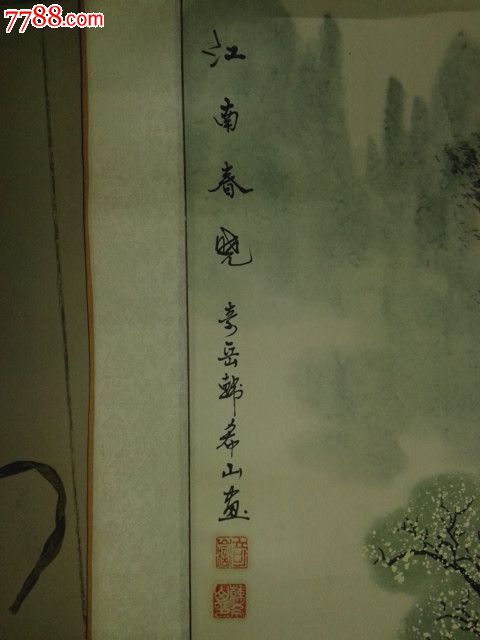 7788.com
江南春晓
奇岳韩希山画